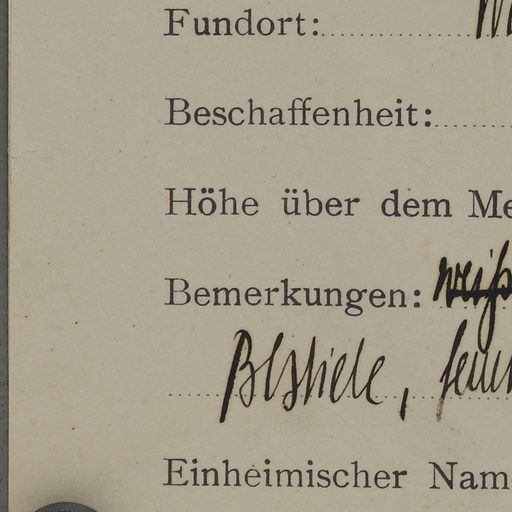 Fundort:
Beschaffenheit:
Höhe über dem Me
Bemerkungen: weiß
Blstiele,
Einheimischer Nam